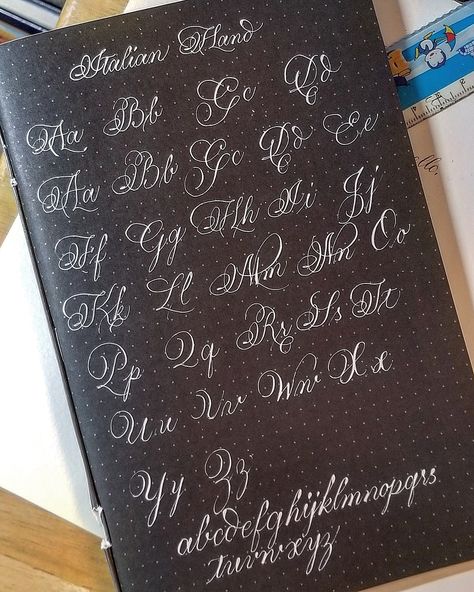 Italian Hand
Aa Bb Cc Dd
Aa Bb Cc Dd Ee
Ff Gg Hh Ii Jj
Kk Ll Mm Nn Oo
Pp Qq Rr Ss Tt
Uu Vv Ww Xx
Yy Zz
abcdefghijklmnopqrs
tuvwxyz